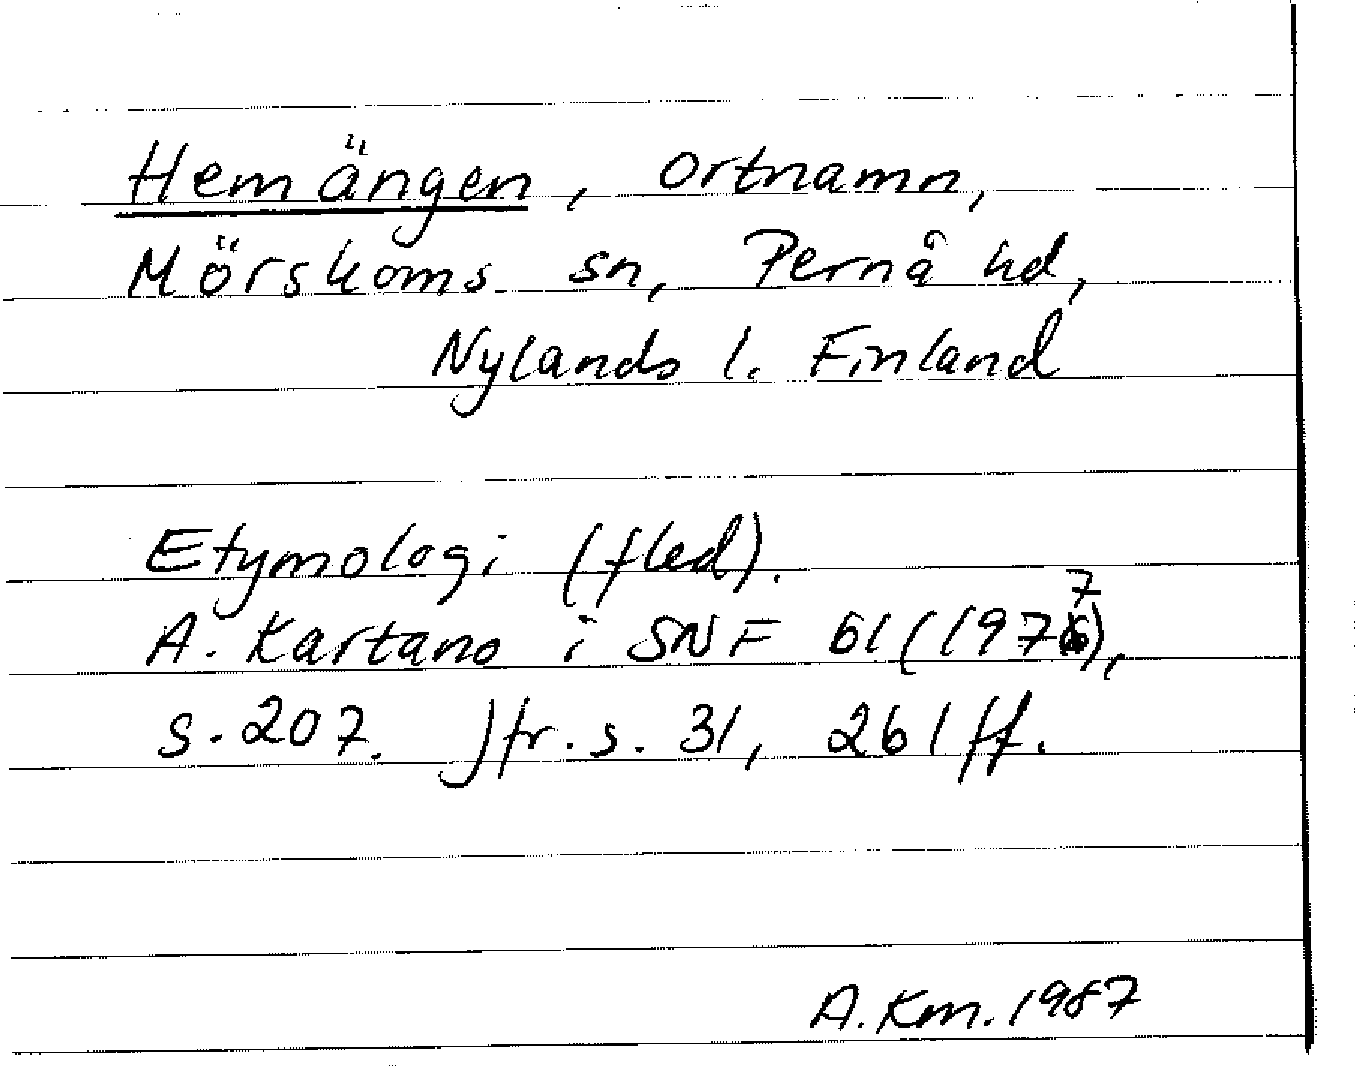 Hemängen, ortnamn,
Mörskoms sn, Pernå hd,
Nylands l. Finland
Etymologi (fled).
A. Kartano i SNF 61 (1977),
s. 207. Jfr. s. 31, 261 ff.
A. Km. 1987